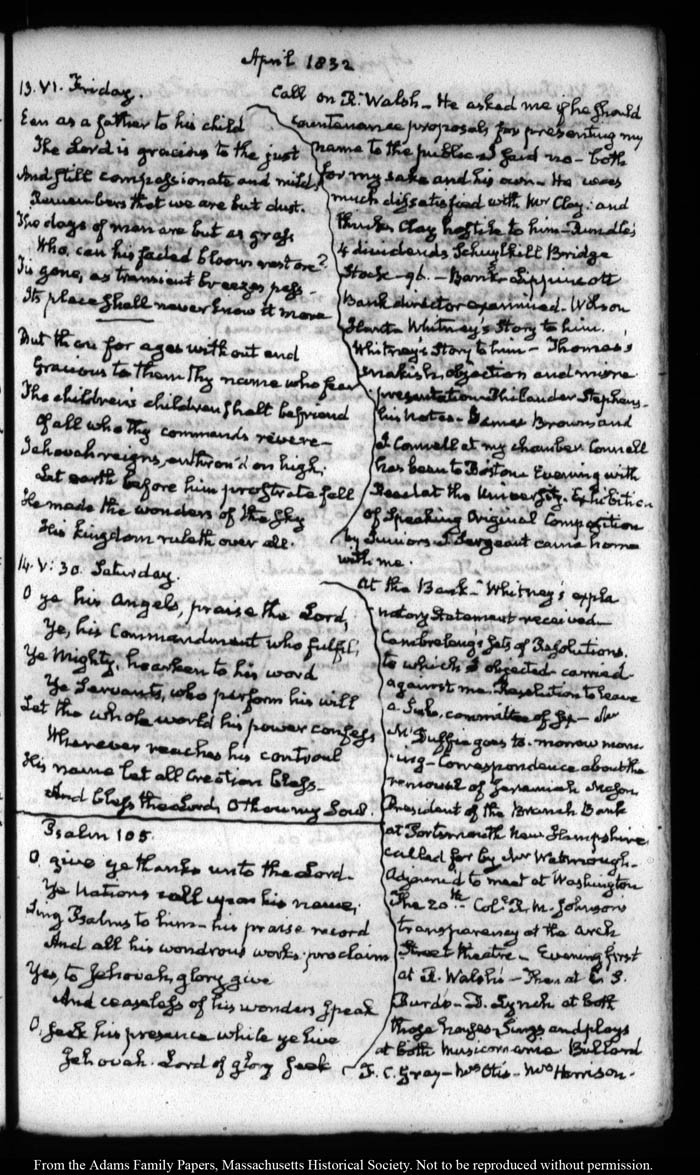 April 1832
13. VI. Friday.
Een as a father to his child
The Lord is gracious to the just
And still compassionate and mild,
Remembers that we are but dust.
The days of man are but as grass
Who can his faded bloom restore?
Tis gone, as transient breezes pass-
Its place shall never know it more
But thou for ages without end
Gracious to them thy name who fear
The children's children shalt befriend
Of all who thy commands revere-
Jehovah reigns, enthron'd on high;
Let earth before him prostrate fall
He made the wonders of the sky
His kingdom ruleth over all.
Call on R. Walsh- He asked me if he should
countenance proposals for presenting my
name to the public. I said no- both
for my sake and his own- He was
much dissatisfied with Mr Clay: and
thinks Clay hostile to him- Rundle's
4 dividends Schuylkill Bridge
Stock- 96.- Bank- Lippincott
Bank director examined- Wilson
Hunt- Whitney's Story to him.
Whitney's Story to him- Thomas's
snakish objection and mire
presentation- Philander Stephens-
his notes- James Brown and
J Connell at my chamber Connell
has been to Boston Evening with
at the University. Exhibition
of Speaking Original Composition
by Juniors J. Sergeant came home
with me.
14. V: 30. Saturday.
O ye his Angels, praise the Lord,
Ye, his Commandment who fulfil;
Ye Mighty, hearken to his word
Ye Servants, who perform his will
Let the whole world his power confess
Wherever reaches his controul
His name let all Creation bless-
And bless the Lord, O thou my Soul.
Psalm 105.
O, give ye thanks unto the Lord-
Ye Nations call upon his name;
Sing Psalms to him- his praise record
And all his wondrous works proclaim
Yes, to Jehovah, glory give
And ceaseless of his wonders speak
O, seek his presence while ye live
Jehovah- Lord of glory seek
At the Bank- Whitney's expla
natory Statement received-
Cambreleng's sets of Resolutions.
to which I objected- carried
against me. Resolution to leave
a Sub. committee of - Mr
McDuffie goes to-morrow morn
ing- Correspondence about the
removal of Jeremiah Mason
President of the Branch Bank
at Portsmouth New Hampshire
called for by Mr Watmough-
Adjourned to meet at Washington
The 20th. Coll. R. M. Johnson's
transparency at the Arch
Street theatre- Evening first
at R. Walsh's- Then at E. S.
Burd's- D. Lynch at both
those houses- Sings and plays
at both Musicomania Bullard
F. C. Gray- Mrs Otis- Mrs Harrison-
From the Adams Family Papers, Massachusetts Historical Society. Not to be reproduced without permission.